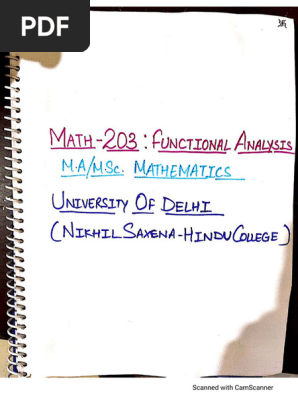 PDF
卐
MATH-203: FUNCTIONAL ANALYSIS
M.A/MSc. MATHEMATICS
UNIVERSITY OF DELHI
(NIKHIL SAXENA-HINDU COLLEGE)
Scanned with CamScanner